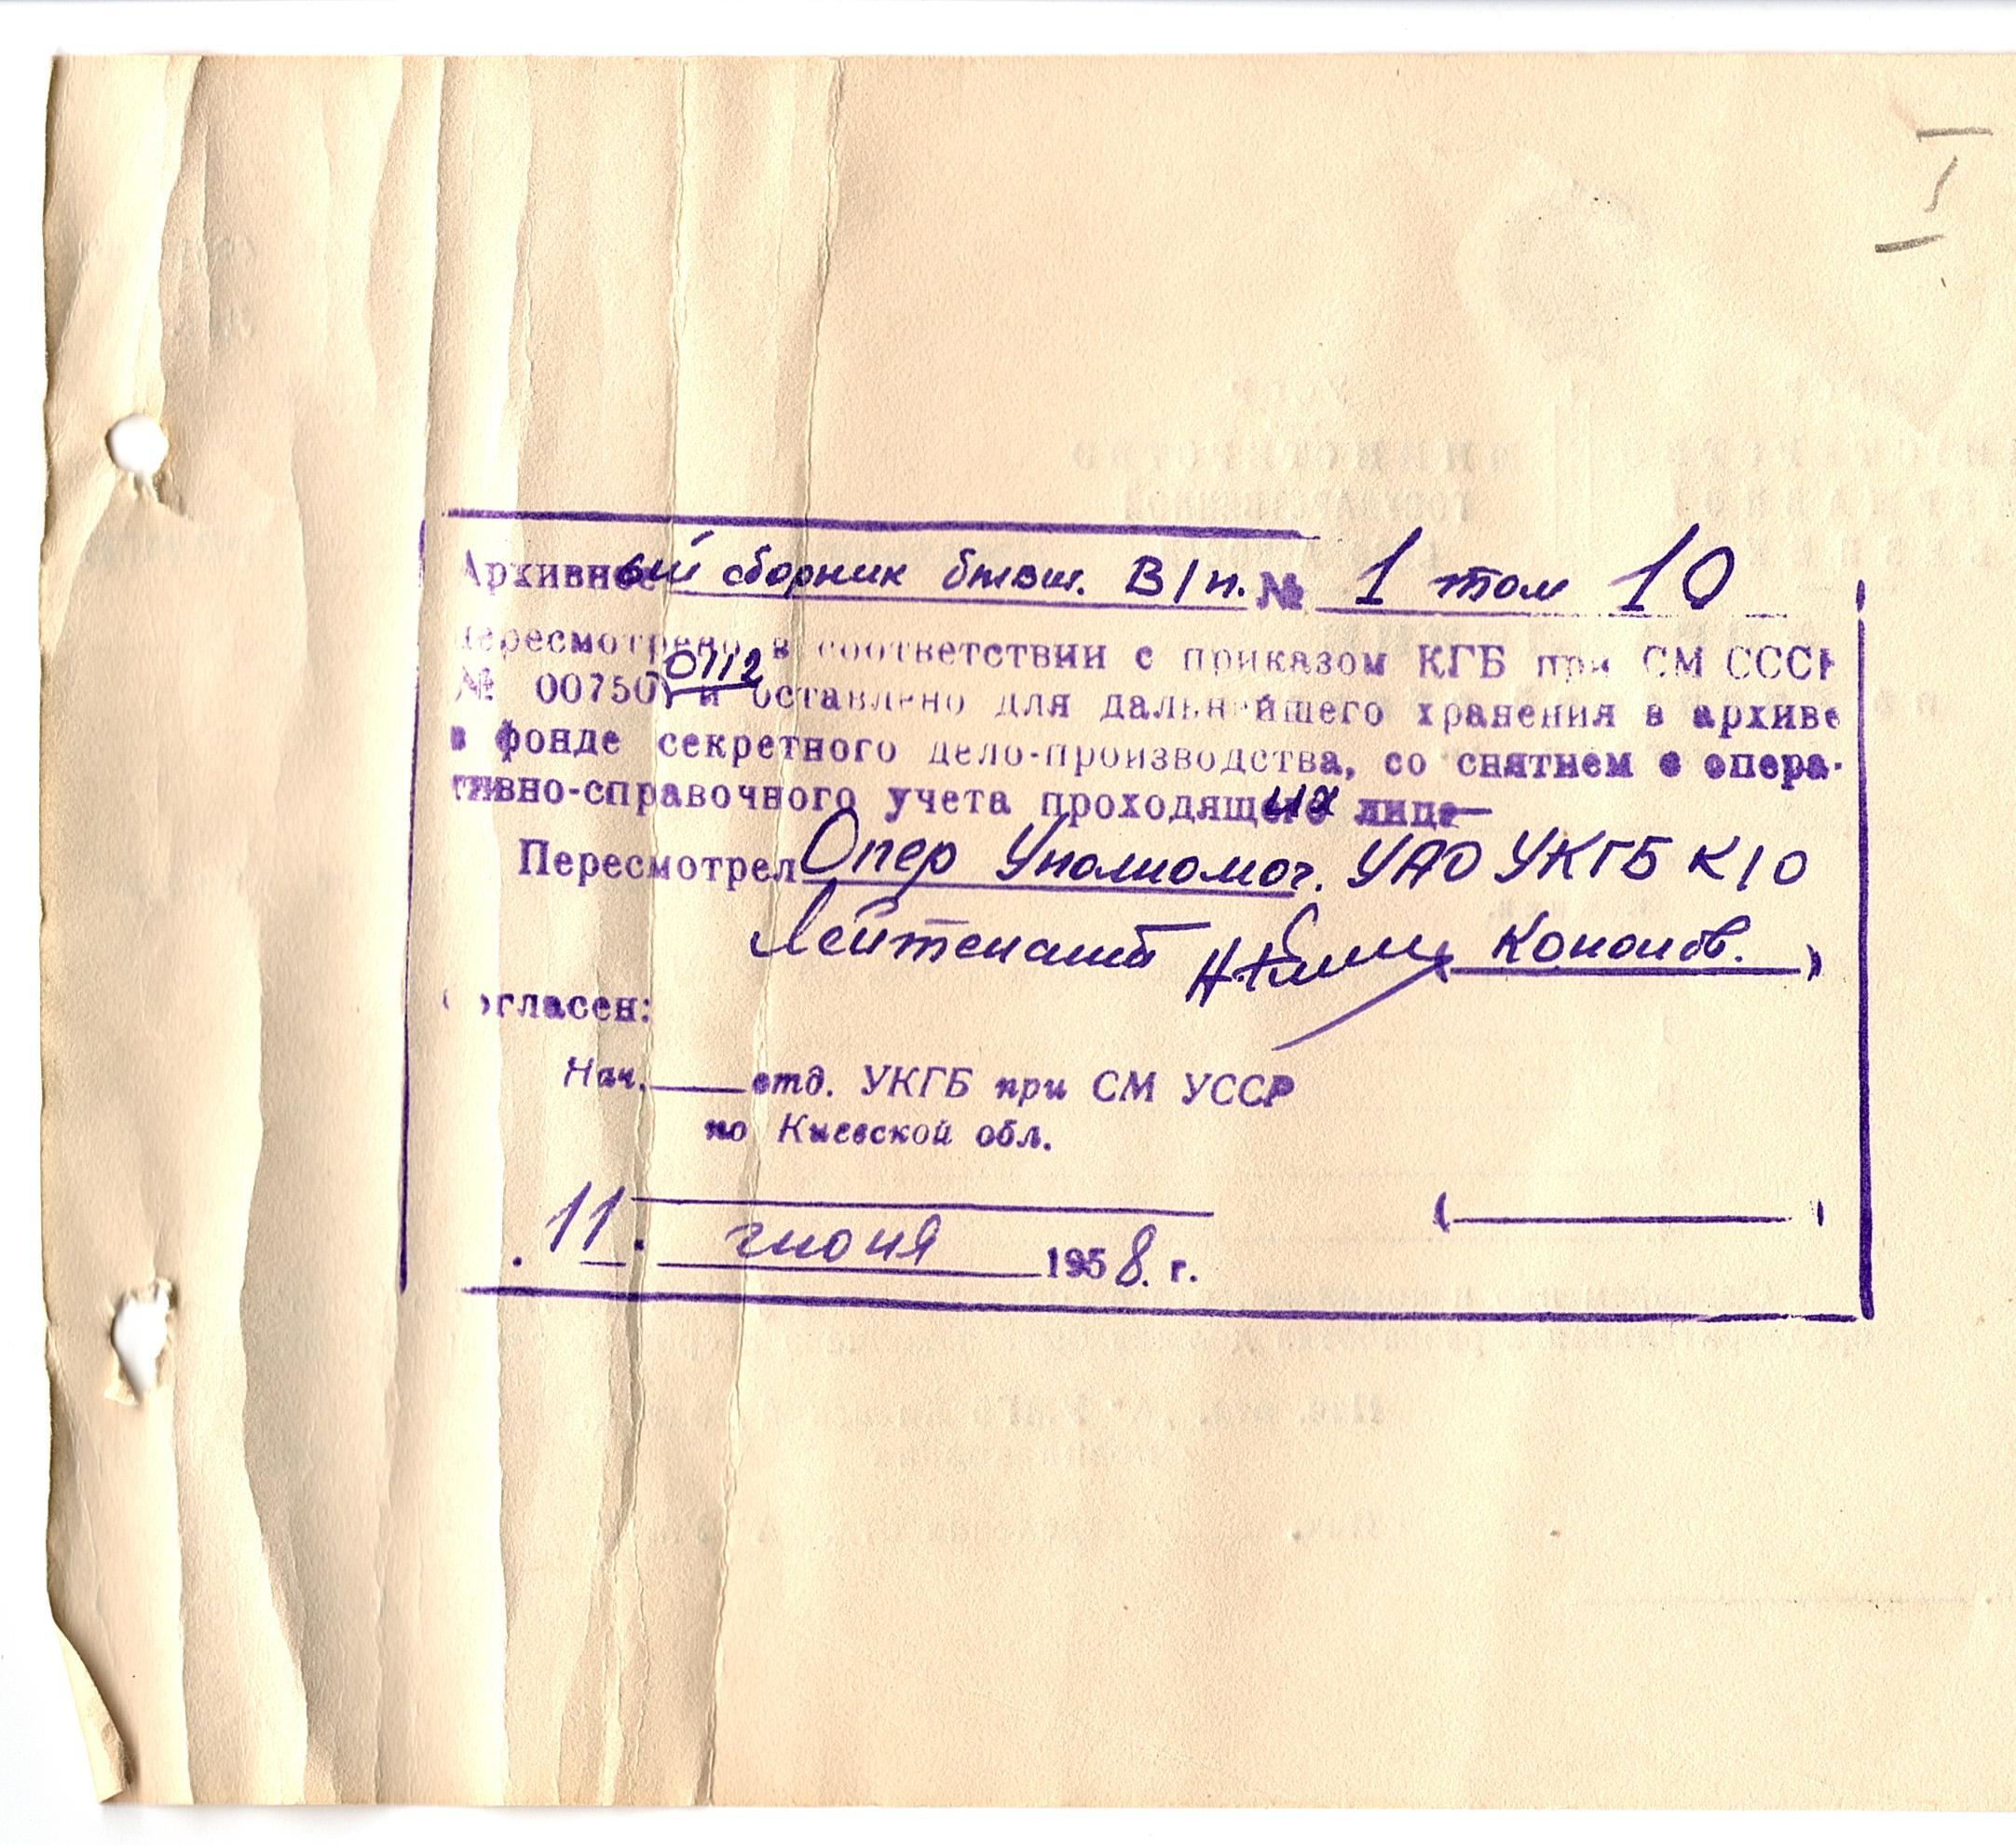 Архивный сборник бывш. В/п. № 1 том 10
пересмотрено в соответствии с приказом КГБ при СМ СССР
0112
№ 00750 и оставлено для дальнейшего хранения в архиве
в фонде секретного дело-производства, со снятием с опера-
тивно-справочного учета проходящих лиц
Пересмотрел Опер Уполномоч. УАО УКГБ К/О
Лейтенант ( Кононов. )
Согласен:
Нач. отд. УКГБ при СМ УССР
по Киевской обл.
( )
"11" июня 1958. г.